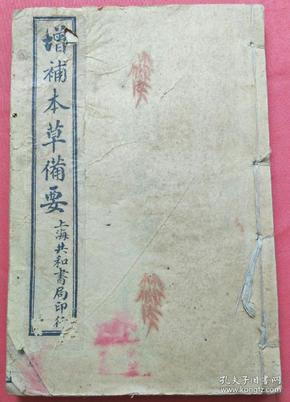 增補本草備要
上海共和書局印行
孔夫子旧书网